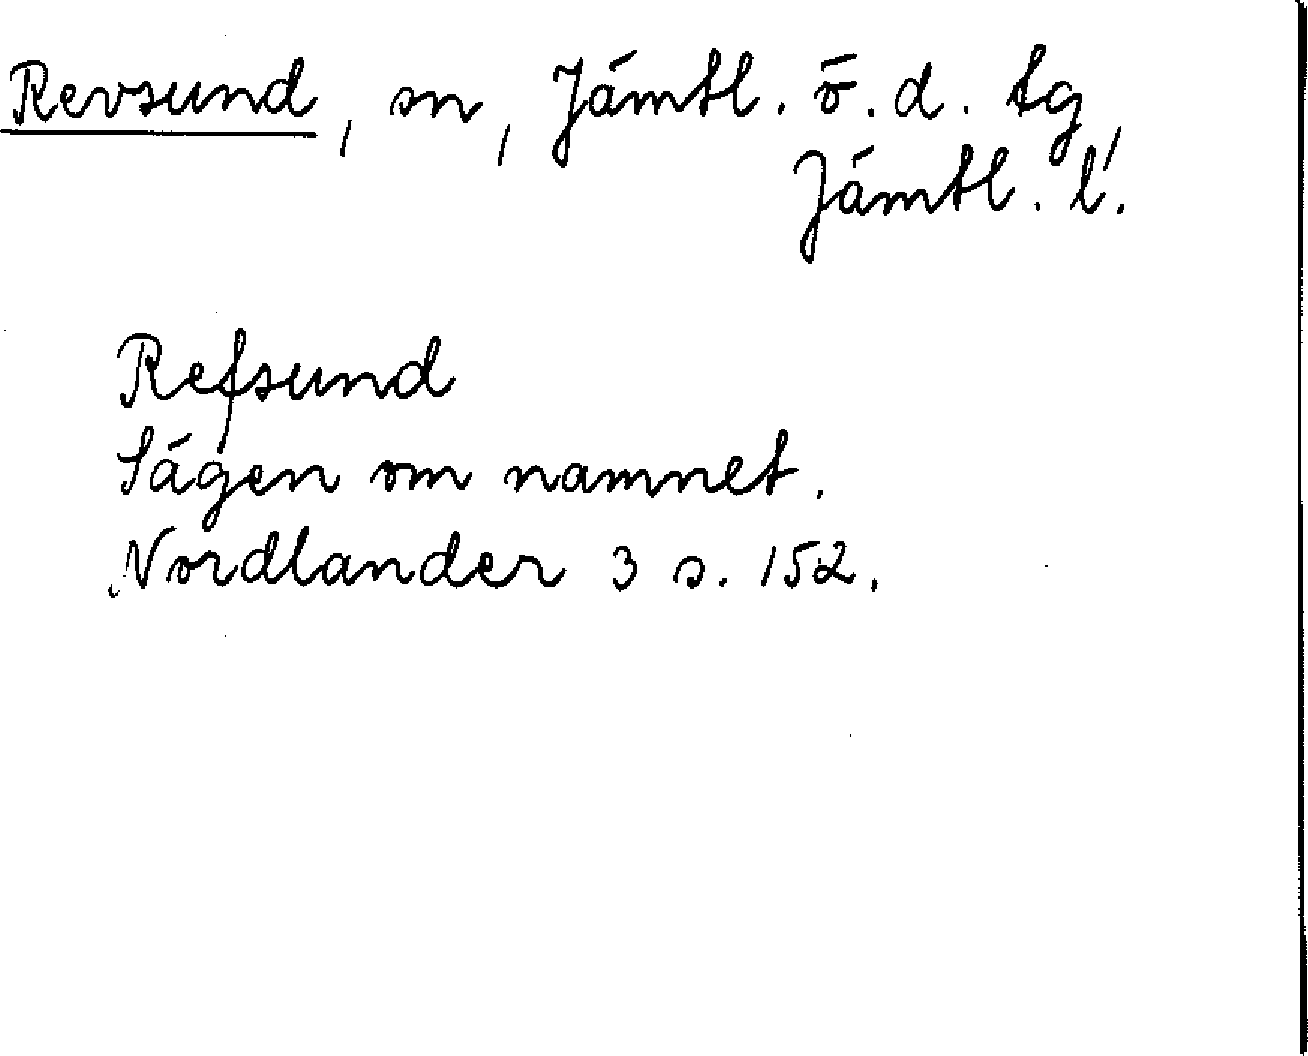 Revsund, sn, Jämtl. ö. d. tg,
Jämtl. l.
Refsund
Sägen om namnet.
Nordlander 3 s. 152.